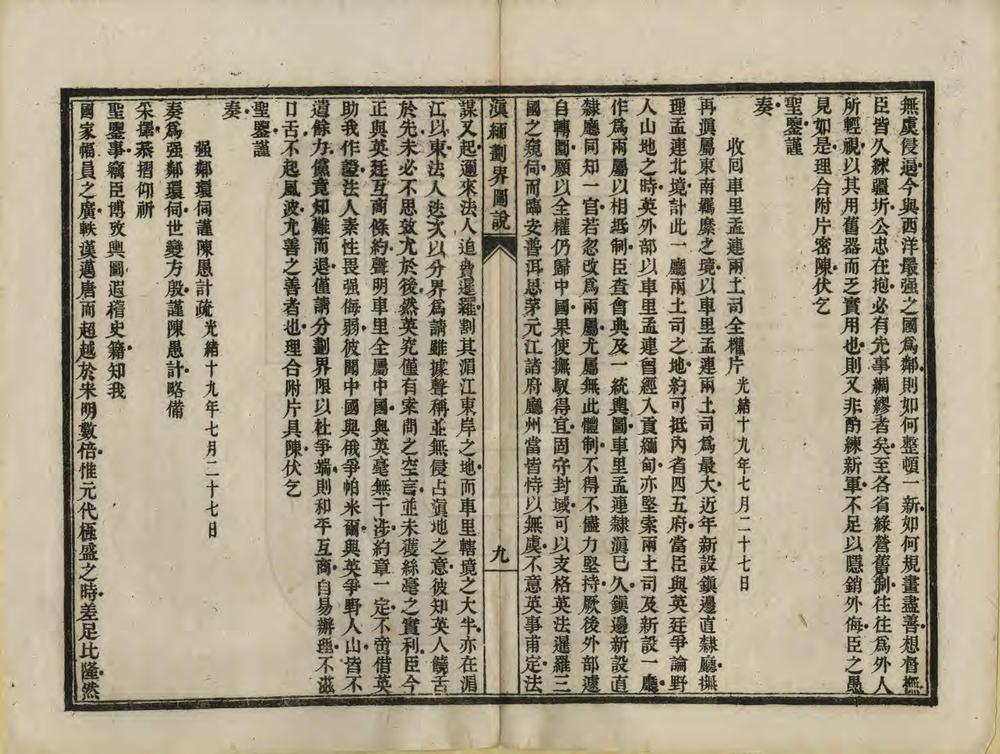 無虞侵逼今與西洋最强之國爲鄰則如何整頓一新如何規畫盡善想督撫
臣皆久練疆圻公忠在抱必有先事綢繆者矣至各省綠營舊制往往爲外人
所輕視以其用舊器而乏實用也則又非酌練新軍不足以隱銷外侮臣之愚
見如是理合附片密陳伏乞
聖鑒謹
奏
收回車里孟連兩土司全權片 光緒十九年七月二十七日
再滇屬東南羈縻之境以車里孟連兩土司爲最大近年新設鎭邊直隸廳撫
理孟連北境計此一廳兩土司之地約可抵內省四五府當臣與英廷爭論野
人山地之時英外部以車里孟連曾經入貢緬甸亦堅索兩土司及新設一廳
作爲兩屬以相抵制臣查會典及一統輿圖車里孟連隸滇已久鎭邊新設直
隸廳同知一官若忽改爲兩屬尤屬無此體制不得不儘力堅持厥後外部遽
自轉圜願以全權仍歸中國果使撫馭得宜固守封域可以支格英法暹羅三
國之窺伺而臨安普洱思茅元江諸府廳州當皆恃以無虞不意英事甫定法
滇緬劃界圖說
九
謀又起邇來法人追脅暹羅割其湄江東岸之地而車里轄境之大半亦在湄
江以東法人迭次以分界爲請雖據聲稱並無侵占滇地之意彼知英人饒舌
於先未必不思效尤於後然英究僅有案間之空言並未獲絲毫之實利臣今
正與英廷互商條約聲明車里全屬中國與英毫無干涉約章一定不啻借英
助我作證法人素性畏强侮弱彼聞中國與俄爭帕米爾與英爭野人山皆不
遺餘力儻竟知難而退僅請分劃界限以杜爭端則和平互商自易辦理不滋
口舌不起風波尤善之善者也理合附片具陳伏乞
聖鑒謹
奏
强鄰環伺謹陳愚計疏 光緒十九年七月二十七日
奏爲强鄰環伺世變方殷謹陳愚計略備
采擇恭摺仰祈
聖鑒事竊臣博攷輿圖遐稽史籍知我
國家幅員之廣軼漢邁唐而超越於宋明數倍惟元代極盛之時差足比隆然